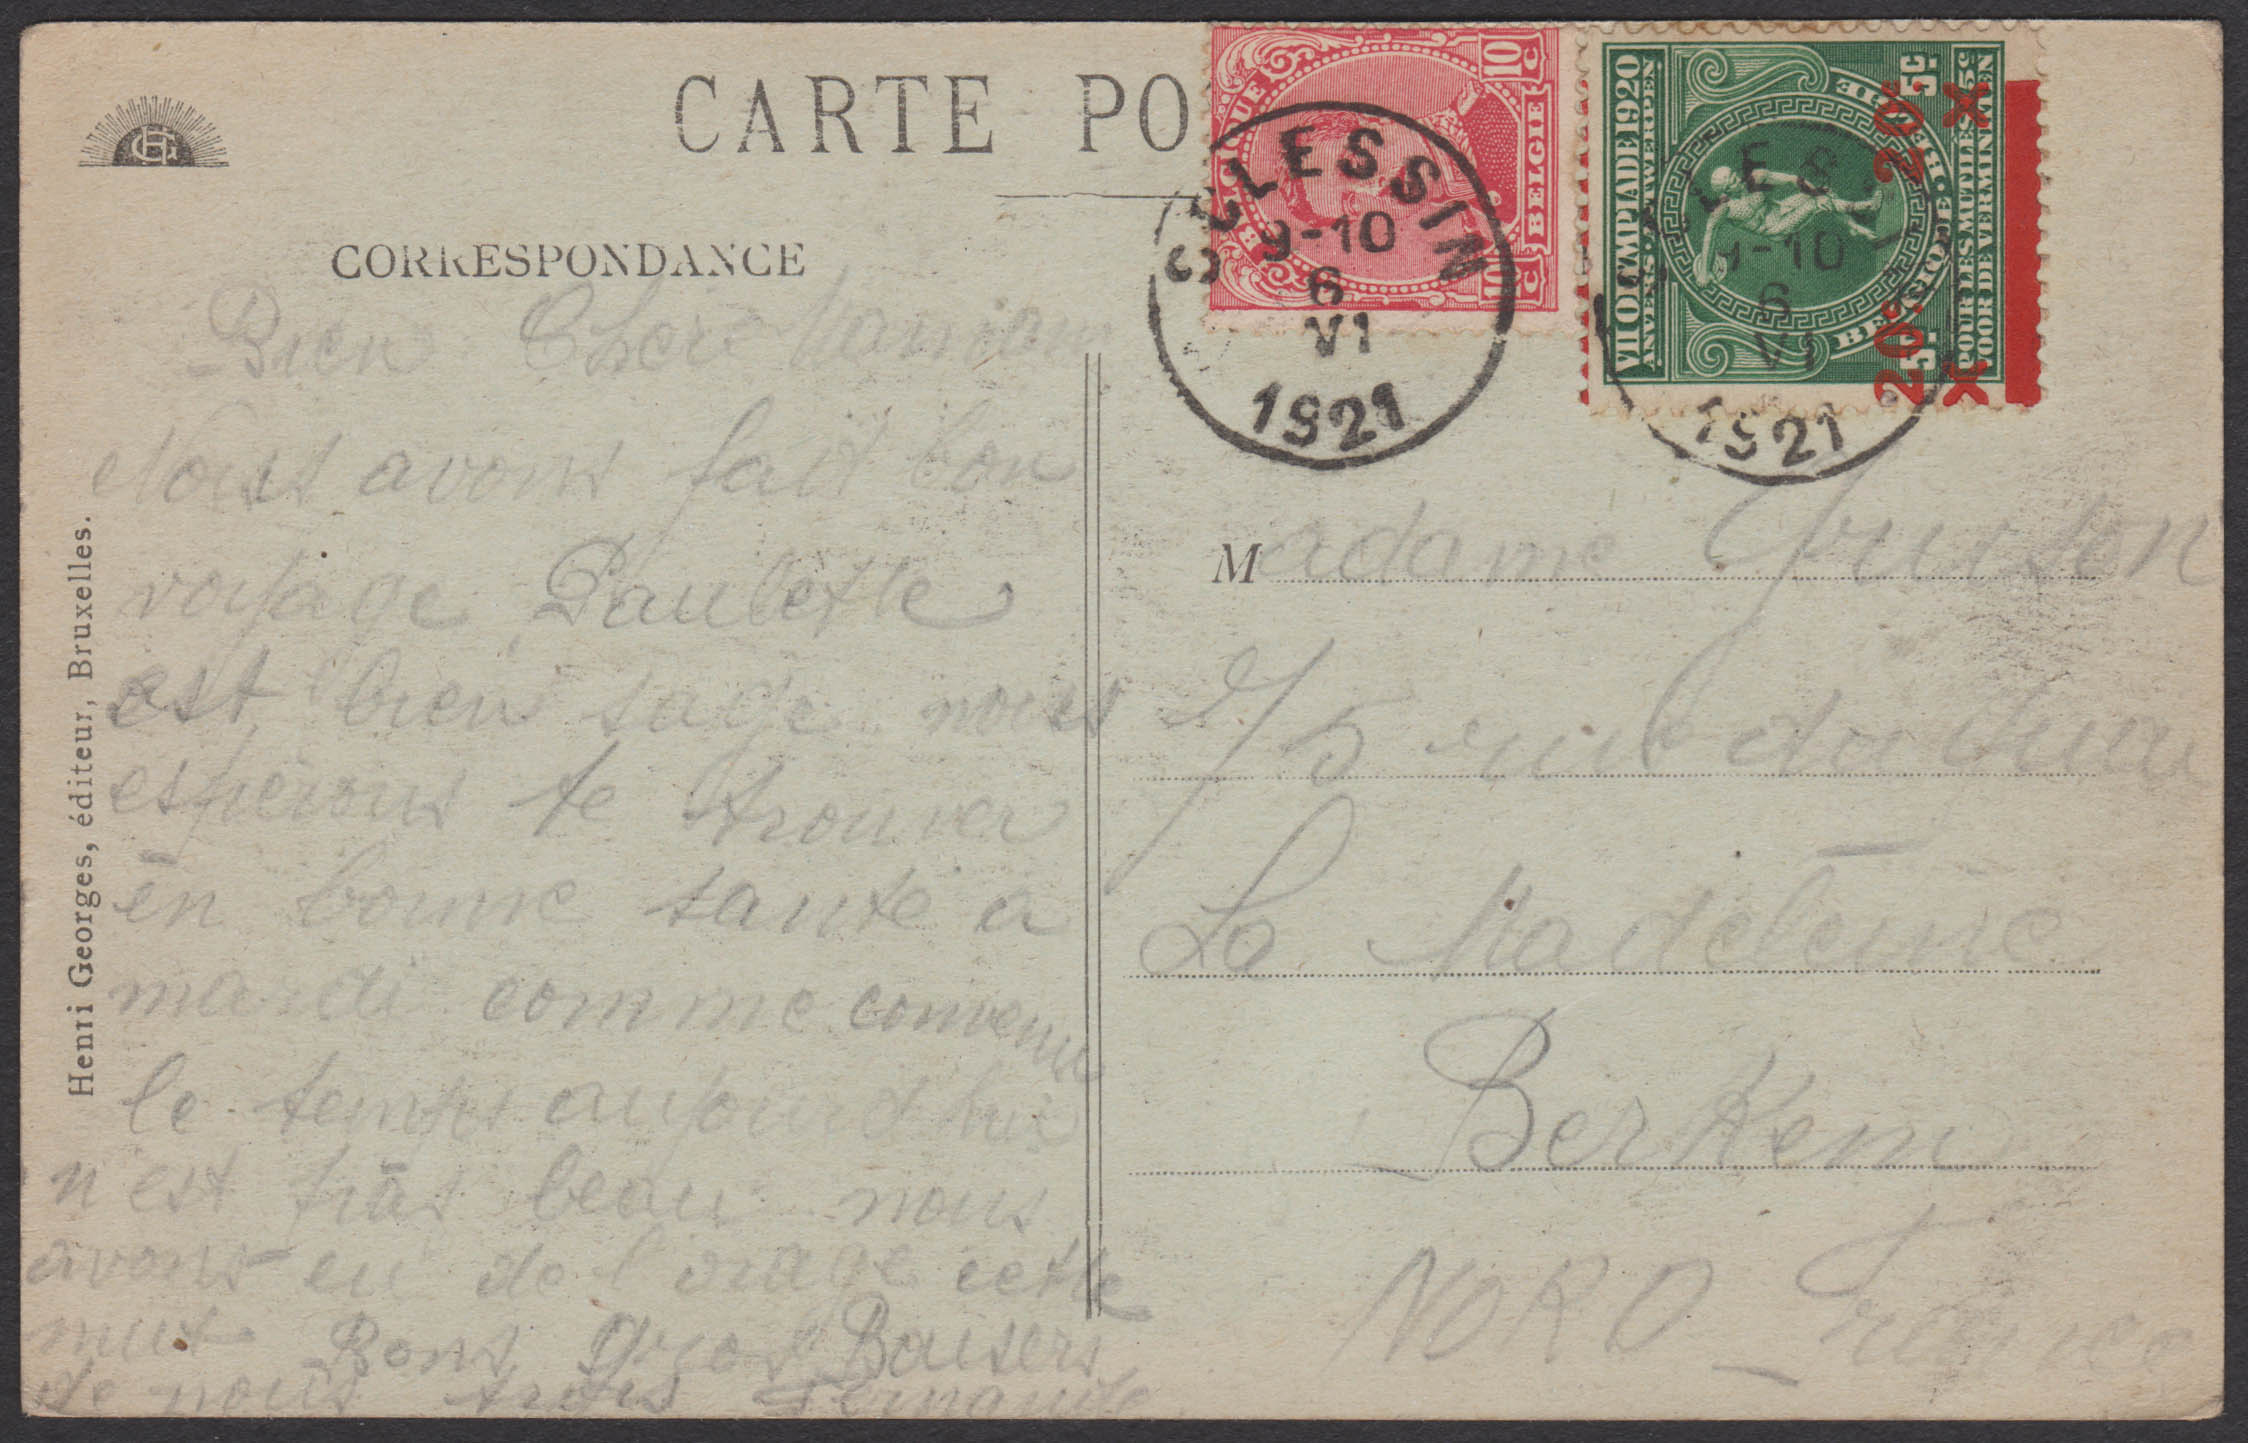 CARTE PO
CORRESPONDANCE
HG
Henri Georges, éditeur, Bruxelles.
Bien Chere Maman
Nous avons fait bon
voyage Paulette
est bien sage nous
esperons te trouver
en bonne santé a
mardi comme convenu
le temps aujourd hui
n'est pas beau nous
avons eu de l orage cette
nuit Bons Gros Baisers
de nous trois Fernande
BELGIQUE
BELGIE
10 C
10 C
SCLESSIN
9-10
6
VI
1921
VII OLYMPIADE 1920
ANVERS · ANTWERPEN
BELGIQUE · BELGIE
5c
5c
POUR LES MUTILÉS
VOOR DE VERMINKTEN
20c. 20c.
X X
SCLESSIN
9-10
6
VI
1921
Madame
75 rue du
La Madeleine
Berkem
NORD France